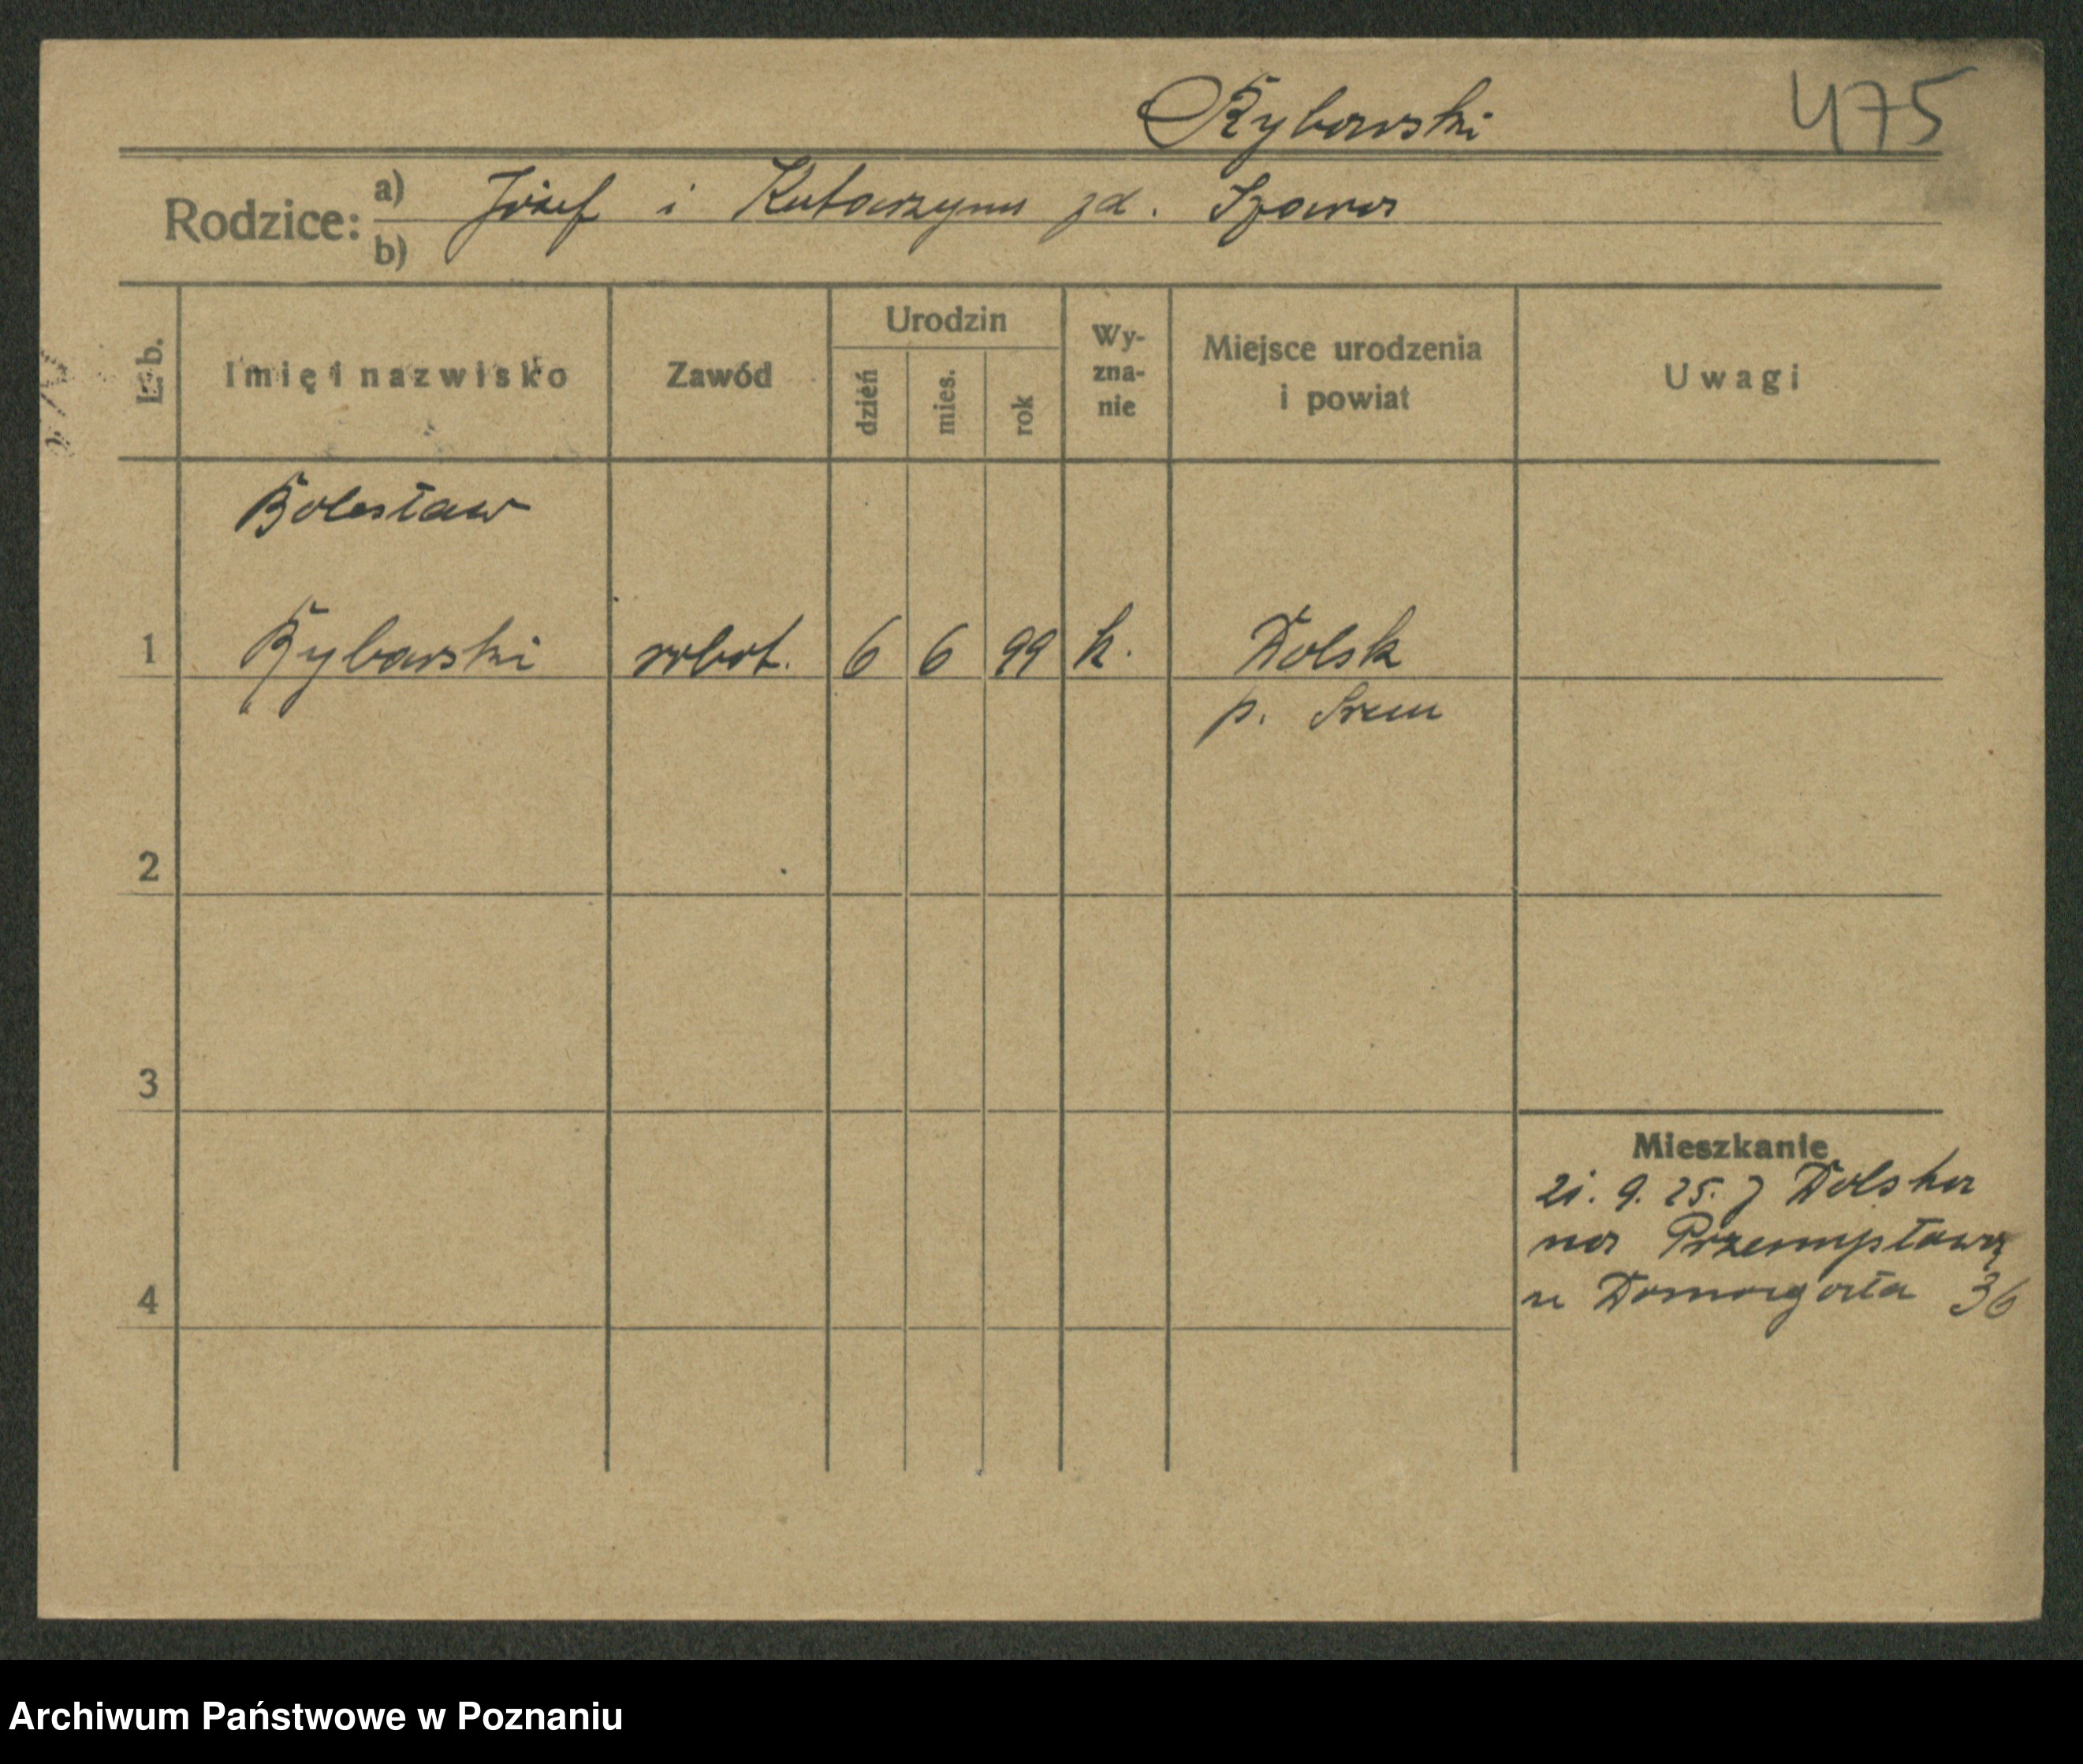 Rybarski 475
Rodzice: a) Józef i Katarzyna zd.
b)
L. b. Imię i nazwisko Zawód Urodzin dzień mies. rok Wy-zna-nie Miejsce urodzenia i powiat Uwagi
Bolesław
1 Rybarski robot. 6 6 99 k. Dolsk
p. Śrem
2
3
Mieszkanie
21. 9. 25. z Dolska
na Przemysłową
u 36
4
Archiwum Państwowe w Poznaniu